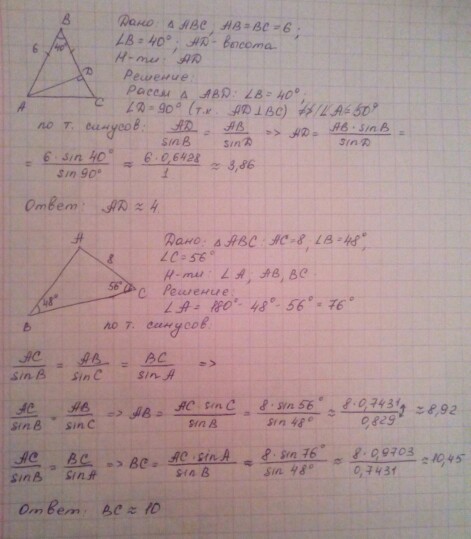 B
6
40°
D
A
C
Дано: △ABC; AB=BC=6;
∠B=40°; AD-высота
Н-ти: AD
Решение:
Рассм △ABD: ∠B=40°;
∠D=90° (т.к. AD⊥BC) ∠A=50°
по т. синусов: AD/sinB = AB/sinD => AD = AB·sinB/sinD =
= 6·sin40°/sin90° ≈ 6·0,6428/1 ≈ 3,86
Ответ: AD ≈ 4
A
8
56°
C
48°
B
Дано: △ABC: AC=8, ∠B=48°,
∠C=56°
Н-ти: ∠A, AB, BC
Решение:
∠A = 180° - 48° - 56° = 76°
по т. синусов:
AC/sinB = AB/sinC = BC/sinA =>
AC/sinB = AB/sinC => AB = AC·sinC/sinB = 8·sin56°/sin48° ≈ 8·0,7431/0,829 ≈ 8,92
AC/sinB = BC/sinA => BC = AC·sinA/sinB = 8·sin76°/sin48° ≈ 8·0,9703/0,7431 ≈ 10,45
Ответ: BC ≈ 10